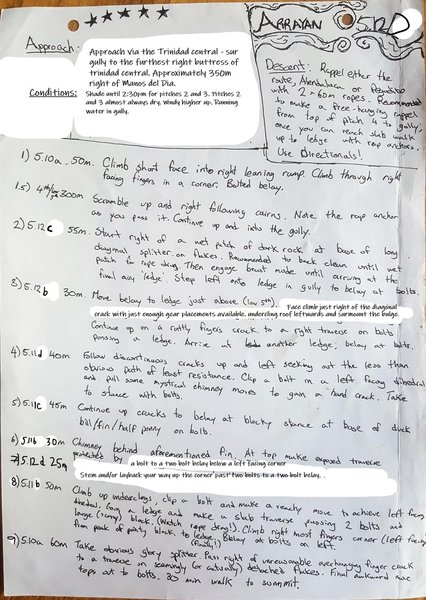 ARRAYAN 5.12D
Approach:
Approach via the Trinidad central - sur
gully to the furthest right buttress of
trinidad central. Approximately 350m
right of Manos del Dia.
Conditions:
Shade until 2:30pm for pitches 2 and 3. Pitches 2
and 3 almost always dry. Windy higher up. Running
water in gully.
Descent: Rappel either the
route, Alendalaca or
with 2 - 60m ropes. Recommended
to make a free-hanging rappel
from top of pitch 4 to gully,
once you can reach slab walk
up to ledge with rap anchors.
Use Directionals!
1) 5.10a. 50m. Climb short face into right leaning ramp. Climb through right
facing fingers in a corner. Bolted belay.
1.5) 4th/ 300m Scramble up and right following cairns. Note the rap anchor
as you pass it. Continue up and into the gully.
2) 5.12c 55m. Start right of a wet patch of dark rock at base of long
diagonal splitter on flakes. Recommended to back clean until wet
patch for rope drag. Then engage beast mode until arriving at the
final airy 'ledge'. Step left onto ledge in gully to belay at bolts.
3) 5.12b 30m. Move belay to ledge just above (low 5th). Face climb just right of the diagonal
crack with just enough gear placements available, undercling roof leftwards and surmount the bulge.
Continue up on a rattly fingers crack to a right traverse on bolts
passing a ledge. Arrive at another ledge, belay at bolts.
4) 5.11d 40m Follow discontinuous cracks up and left seeking out the less than
obvious path of least resistance. Clip a bolt in a left facing dihedral
and pull some mystical chimney moves to gain a hand crack. Take
to stance with bolts.
5) 5.11c 45m Continue up cracks to belay at blocky stance at base of duck
bill/fin/half penny on bolts.
6) 5.11b 30m Chimney behind aforementioned fin. At top make exposed traverse
protected by a bolt to a two bolt belay below a left facing corner
7) 5.12d 25m Stem and/or layback your way up the corner past two bolts to a two bolt belay.
8) 5.11b 50m Climb up underclings, clip a bolt and make a reachy move to achieve left facing
dihedral. Gain a ledge and make a slab traverse passing 2 bolts and
large (scary) block. (Watch rope drag!). Climb right most fingers corner (left facing)
from peak of pointy block to ledge. Belay at bolts on left.
(Finally!)
9) 5.10a 60m Take obvious glory splitter. Pass right of unreasonable overhanging finger crack
to a traverse on seemingly (or actually) detached flakes. Final awkward move
tops out to bolts. 30 min walk to summit.